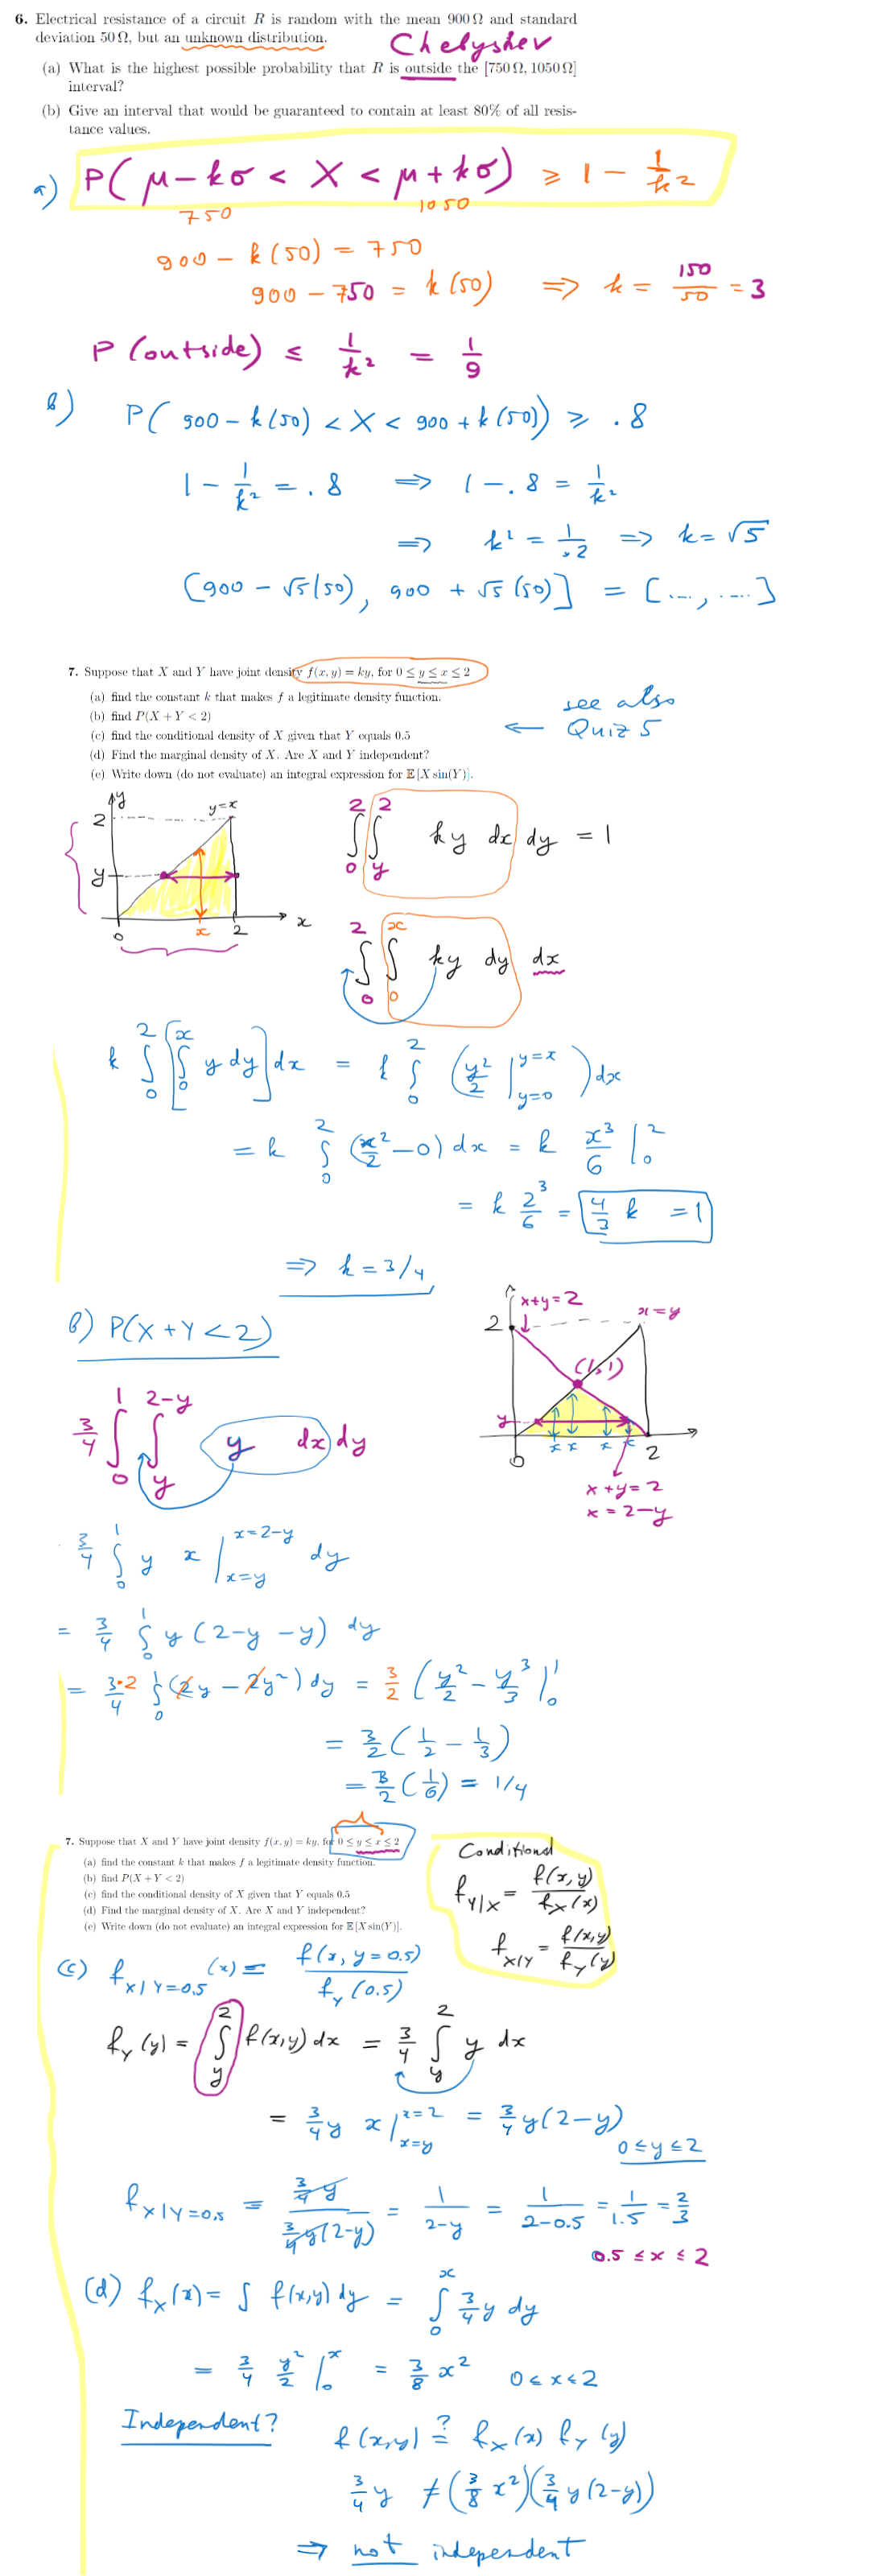 6. Electrical resistance of a circuit R is random with the mean 900 Ω and standard
deviation 50 Ω, but an unknown distribution.
Chebyshev
(a) What is the highest possible probability that R is outside the [750 Ω, 1050 Ω]
interval?
(b) Give an interval that would be guaranteed to contain at least 80% of all resis-
tance values.
a) P(μ − kσ < X < μ + kσ) ≥ 1 − 1/k²
750 1050
900 − k(50) = 750
900 − 750 = k(50) ⇒ k = 150/50 = 3
P(outside) ≤ 1/k² = 1/9
b) P(900 − k(50) < X < 900 + k(50)) ≥ .8
1 − 1/k² = .8 ⇒ 1 − .8 = 1/k²
⇒ k² = 1/.2 ⇒ k = √5
[900 − √5(50), 900 + √5(50)] = [...., ....]
7. Suppose that X and Y have joint density f(x, y) = ky, for 0 ≤ y ≤ x ≤ 2
(a) find the constant k that makes f a legitimate density function.
(b) find P(X + Y < 2)
(c) find the conditional density of X given that Y equals 0.5
(d) Find the marginal density of X. Are X and Y independent?
(e) Write down (do not evaluate) an integral expression for 𝔼[X sin(Y)].
see also
← Quiz 5
y
y=x
2
y
0 x 2 x
∫₀² ∫_y² ky dx dy = 1
∫₀² ∫₀ˣ ky dy dx
k ∫₀² [∫₀ˣ y dy] dx = k ∫₀² (y²/2 |_{y=0}^{y=x}) dx
= k ∫₀² (x²/2 − 0) dx = k x³/6 |₀²
= k 2³/6 = 4/3 k = 1
⇒ k = 3/4
b) P(X + Y < 2)
x+y=2
2
x=y
(1,1)
y
0 x x x x 2
x + y = 2
x = 2−y
3/4 ∫₀¹ ∫_y^{2−y} y dx dy
3/4 ∫₀¹ y x |_{x=y}^{x=2−y} dy
= 3/4 ∫₀¹ y(2−y −y) dy
= 3·2/4 ∫₀¹ (2y − 2y²) dy = 3/2 (y²/2 − y³/3)|₀¹
= 3/2 (1/2 − 1/3)
= 3/2 (1/6) = 1/4
7. Suppose that X and Y have joint density f(x, y) = ky, for 0 ≤ y ≤ x ≤ 2
(a) find the constant k that makes f a legitimate density function.
(b) find P(X + Y < 2)
(c) find the conditional density of X given that Y equals 0.5
(d) Find the marginal density of X. Are X and Y independent?
(e) Write down (do not evaluate) an integral expression for 𝔼[X sin(Y)].
Conditional
f_{Y|X} = f(x,y)/f_X(x)
f_{X|Y} = f(x,y)/f_Y(y)
(c) f_{X|Y=0.5}(x) = f(x, y=0.5)/f_Y(0.5)
f_Y(y) = ∫_y² f(x,y) dx = 3/4 ∫_y² y dx
= 3/4 y x |_{x=y}^{x=2} = 3/4 y(2−y)
0 ≤ y ≤ 2
f_{X|Y=0.5} = (3/4 y)/(3/4 y(2−y)) = 1/(2−y) = 1/(2−0.5) = 1/1.5 = 2/3
0.5 ≤ x ≤ 2
(d) f_X(x) = ∫ f(x,y) dy = ∫₀ˣ 3/4 y dy
= 3/4 y²/2 |₀ˣ = 3/8 x² 0 ≤ x ≤ 2
Independent? f(x,y) ≟ f_X(x) f_Y(y)
3/4 y ≠ (3/8 x²)(3/4 y(2−y))
⇒ not independent